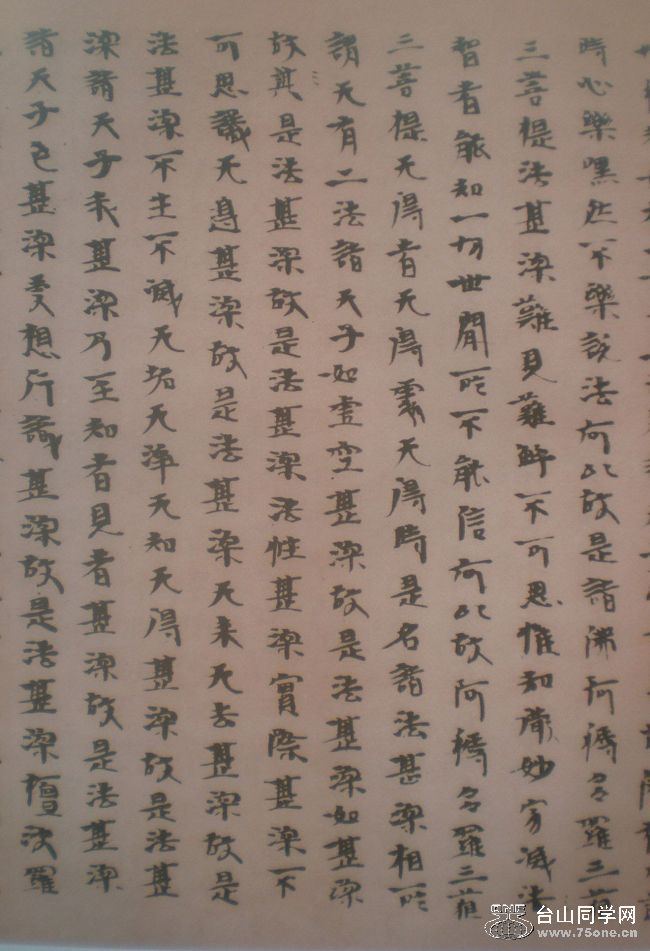 時心樂嘿然不樂說法何以故是諸佛阿耨多羅三藐
三菩提法甚深難見難解不可思惟知微妙寂滅法
智者能知一切世間所不能信何以故阿耨多羅三藐
三菩提无得者无得處无得時是名諸法甚深相所
謂无有二法諸天子如虛空甚深故是法甚深如甚深
故是法甚深故是法甚深法性甚深實際甚深不
可思議无邊甚深故是法甚深无來无去甚深故是
法甚深不生不滅无垢无淨无知无得甚深故是法甚
深諸天子我甚深乃至知者見者甚深故是法甚深
諸天子色甚深受想行識甚深故是法甚深檀波羅
ONE 台山同学网
www.75one.cn